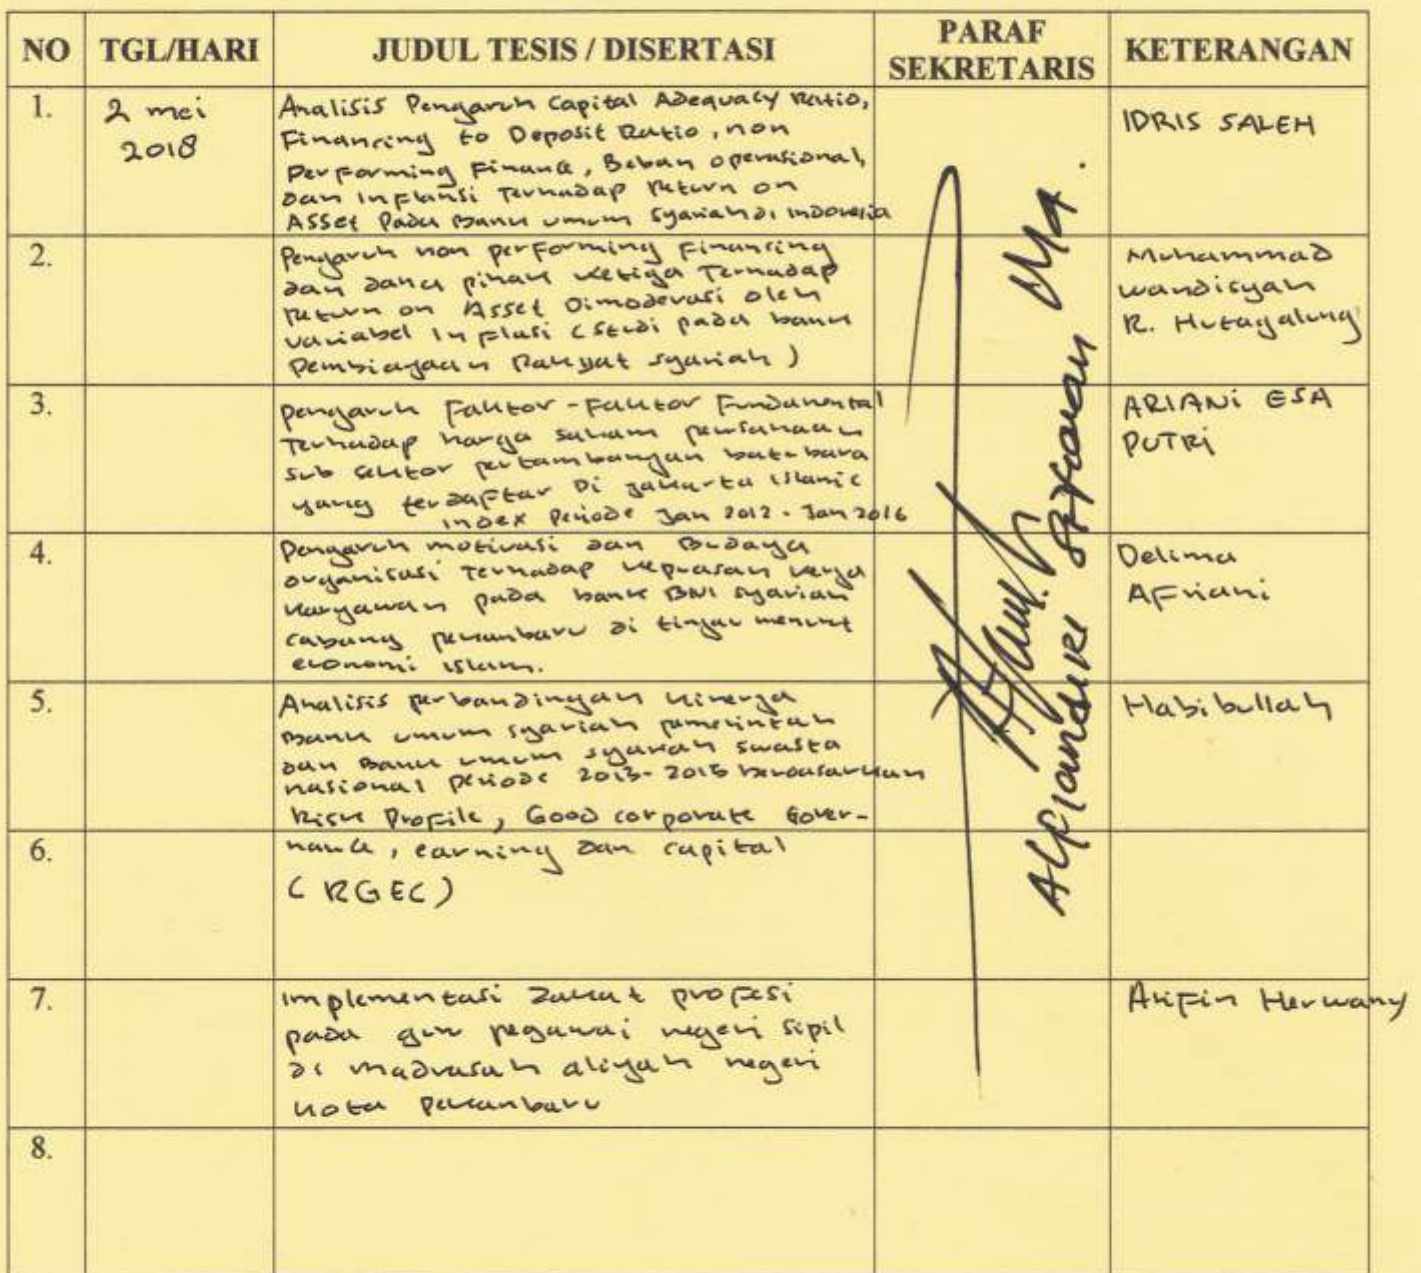 NO TGL/HARI JUDUL TESIS / DISERTASI PARAF SEKRETARIS KETERANGAN
1. 2 mei 2018
Analisis Pengaruh Capital Adequacy Ratio,
Financing to Deposit Ratio, non
Performing Finance, Beban operasional,
dan Inflansi Terhadap Return on
Asset Pada Bank umum syariah di indonesia
IDRIS SALEH
2.
Pengaruh non performing Financing
dan dana pihak ketiga Terhadap
Return on Asset Dimoderasi oleh
variabel Inflasi (Studi pada bank
Pembiayaan Rakyat syariah)
Muhammad
wandisyah
R. Hutagalung
3.
pengaruh Faktor-Faktor Fundamental
Terhadap harga saham perusahaan
sub sektor pertambangan batubara
yang terdaftar Di Jakarta islamic
index Periode Jan 2012 - Jan 2016
ARIANi ESA
PUTRi
4.
Pengaruh motivasi dan Budaya
organisasi Terhadap kepuasan kerja
karyawan pada bank BNI syariah
cabang pekanbaru di tinjau menurut
ekonomi islam.
Delima
Afriani
5.
Analisis perbandingan kinerja
Bank umum syariah pemerintah
dan Bank umum syariah swasta
nasional periode 2013-2015 berdasarkan
Risk Profile, Good corporate Gover-
Habibullah
6.
nance, earning dan capital
(RGEC)
7.
implementasi Zakat profesi
pada guru pegawai negeri sipil
di madrasah aliyah negeri
kota pekanbaru
Arifin Herwany
8.